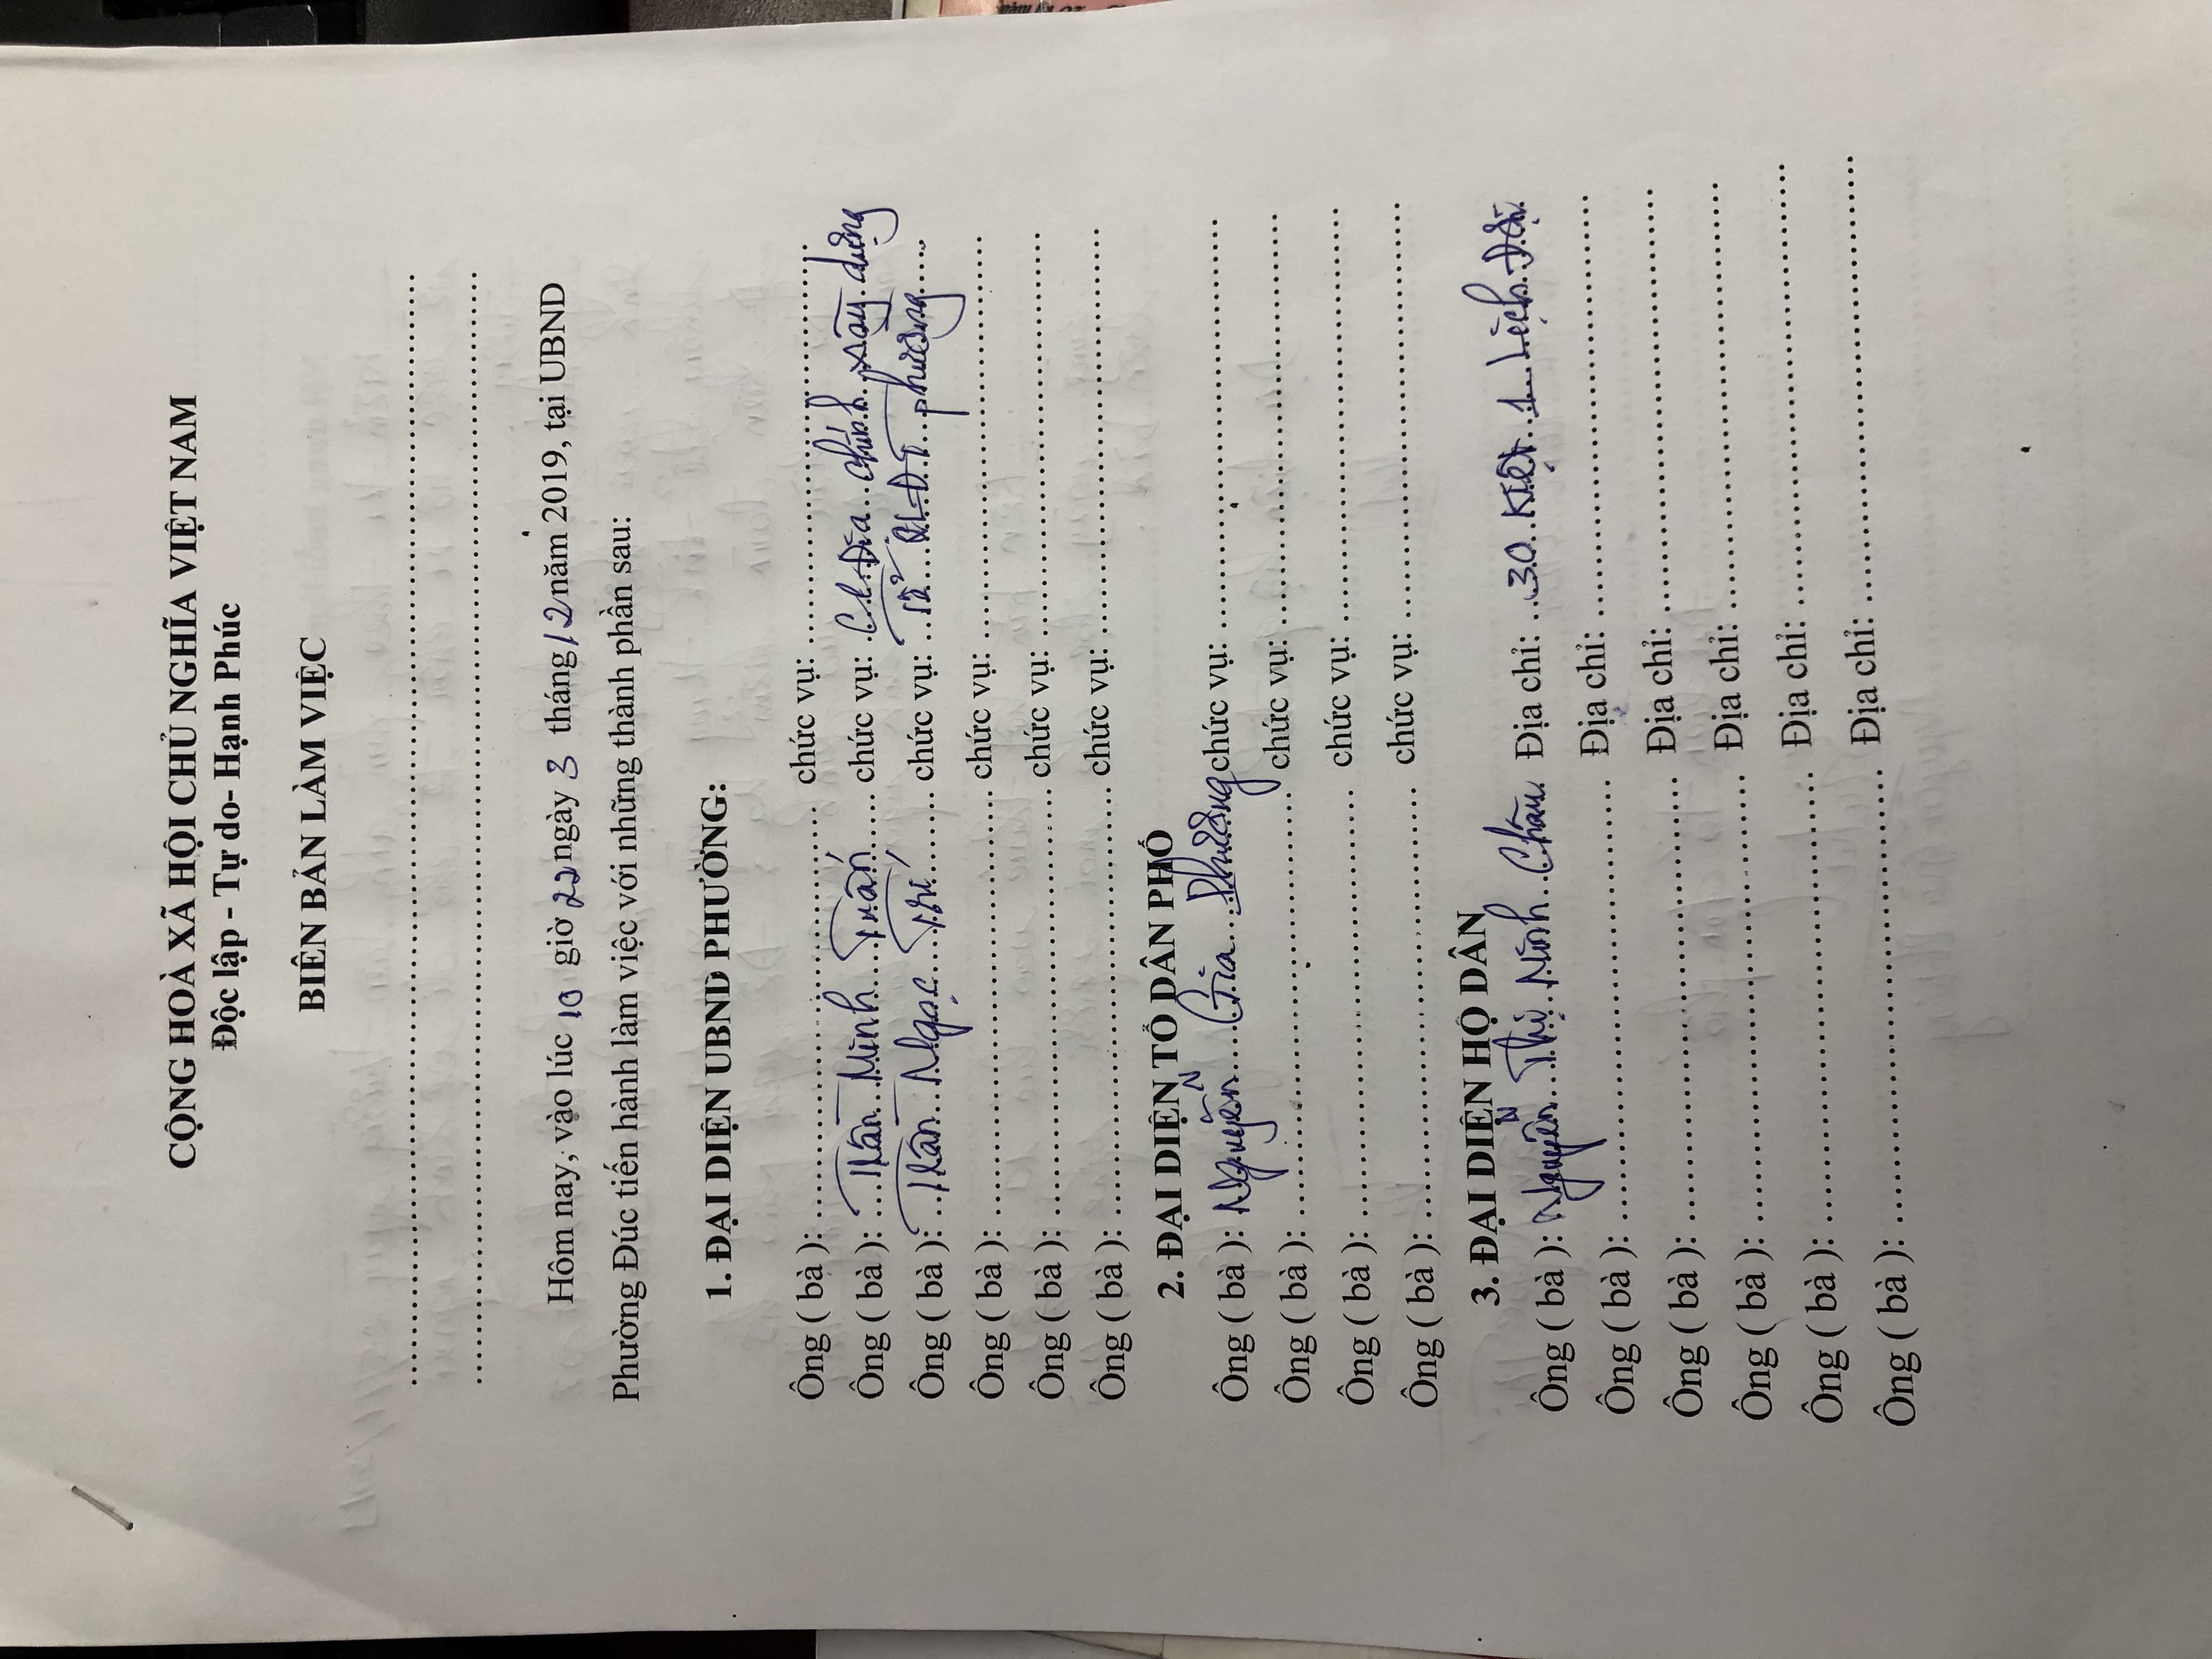 CỘNG HOÀ XÃ HỘI CHỦ NGHĨA VIỆT NAM
Độc lập - Tự do- Hạnh Phúc
BIÊN BẢN LÀM VIỆC
Hôm nay, vào lúc 10 giờ 22 ngày 3 tháng 12 năm 2019, tại UBND
Phường Đúc tiến hành làm việc với những thành phần sau:
1. ĐẠI DIỆN UBND PHƯỜNG:
Ông ( bà ): chức vụ:
Ông ( bà ): Trần Minh Tuấn chức vụ: CC Địa chính xây dựng
Ông ( bà ): Trần Ngọc Trí chức vụ: Tổ QLĐT phường
Ông ( bà ): chức vụ:
Ông ( bà ): chức vụ:
Ông ( bà ): chức vụ:
2. ĐẠI DIỆN TỔ DÂN PHỐ
Ông ( bà ): Nguyễn Gia Phương chức vụ:
Ông ( bà ): chức vụ:
Ông ( bà ): chức vụ:
Ông ( bà ): chức vụ:
3. ĐẠI DIỆN HỘ DÂN
Ông ( bà ): Nguyễn Thị Ninh Châu Địa chỉ: 30 Kiệt 1 Lịch Đợi
Ông ( bà ): Địa chỉ:
Ông ( bà ): Địa chỉ:
Ông ( bà ): Địa chỉ:
Ông ( bà ): Địa chỉ:
Ông ( bà ): Địa chỉ: